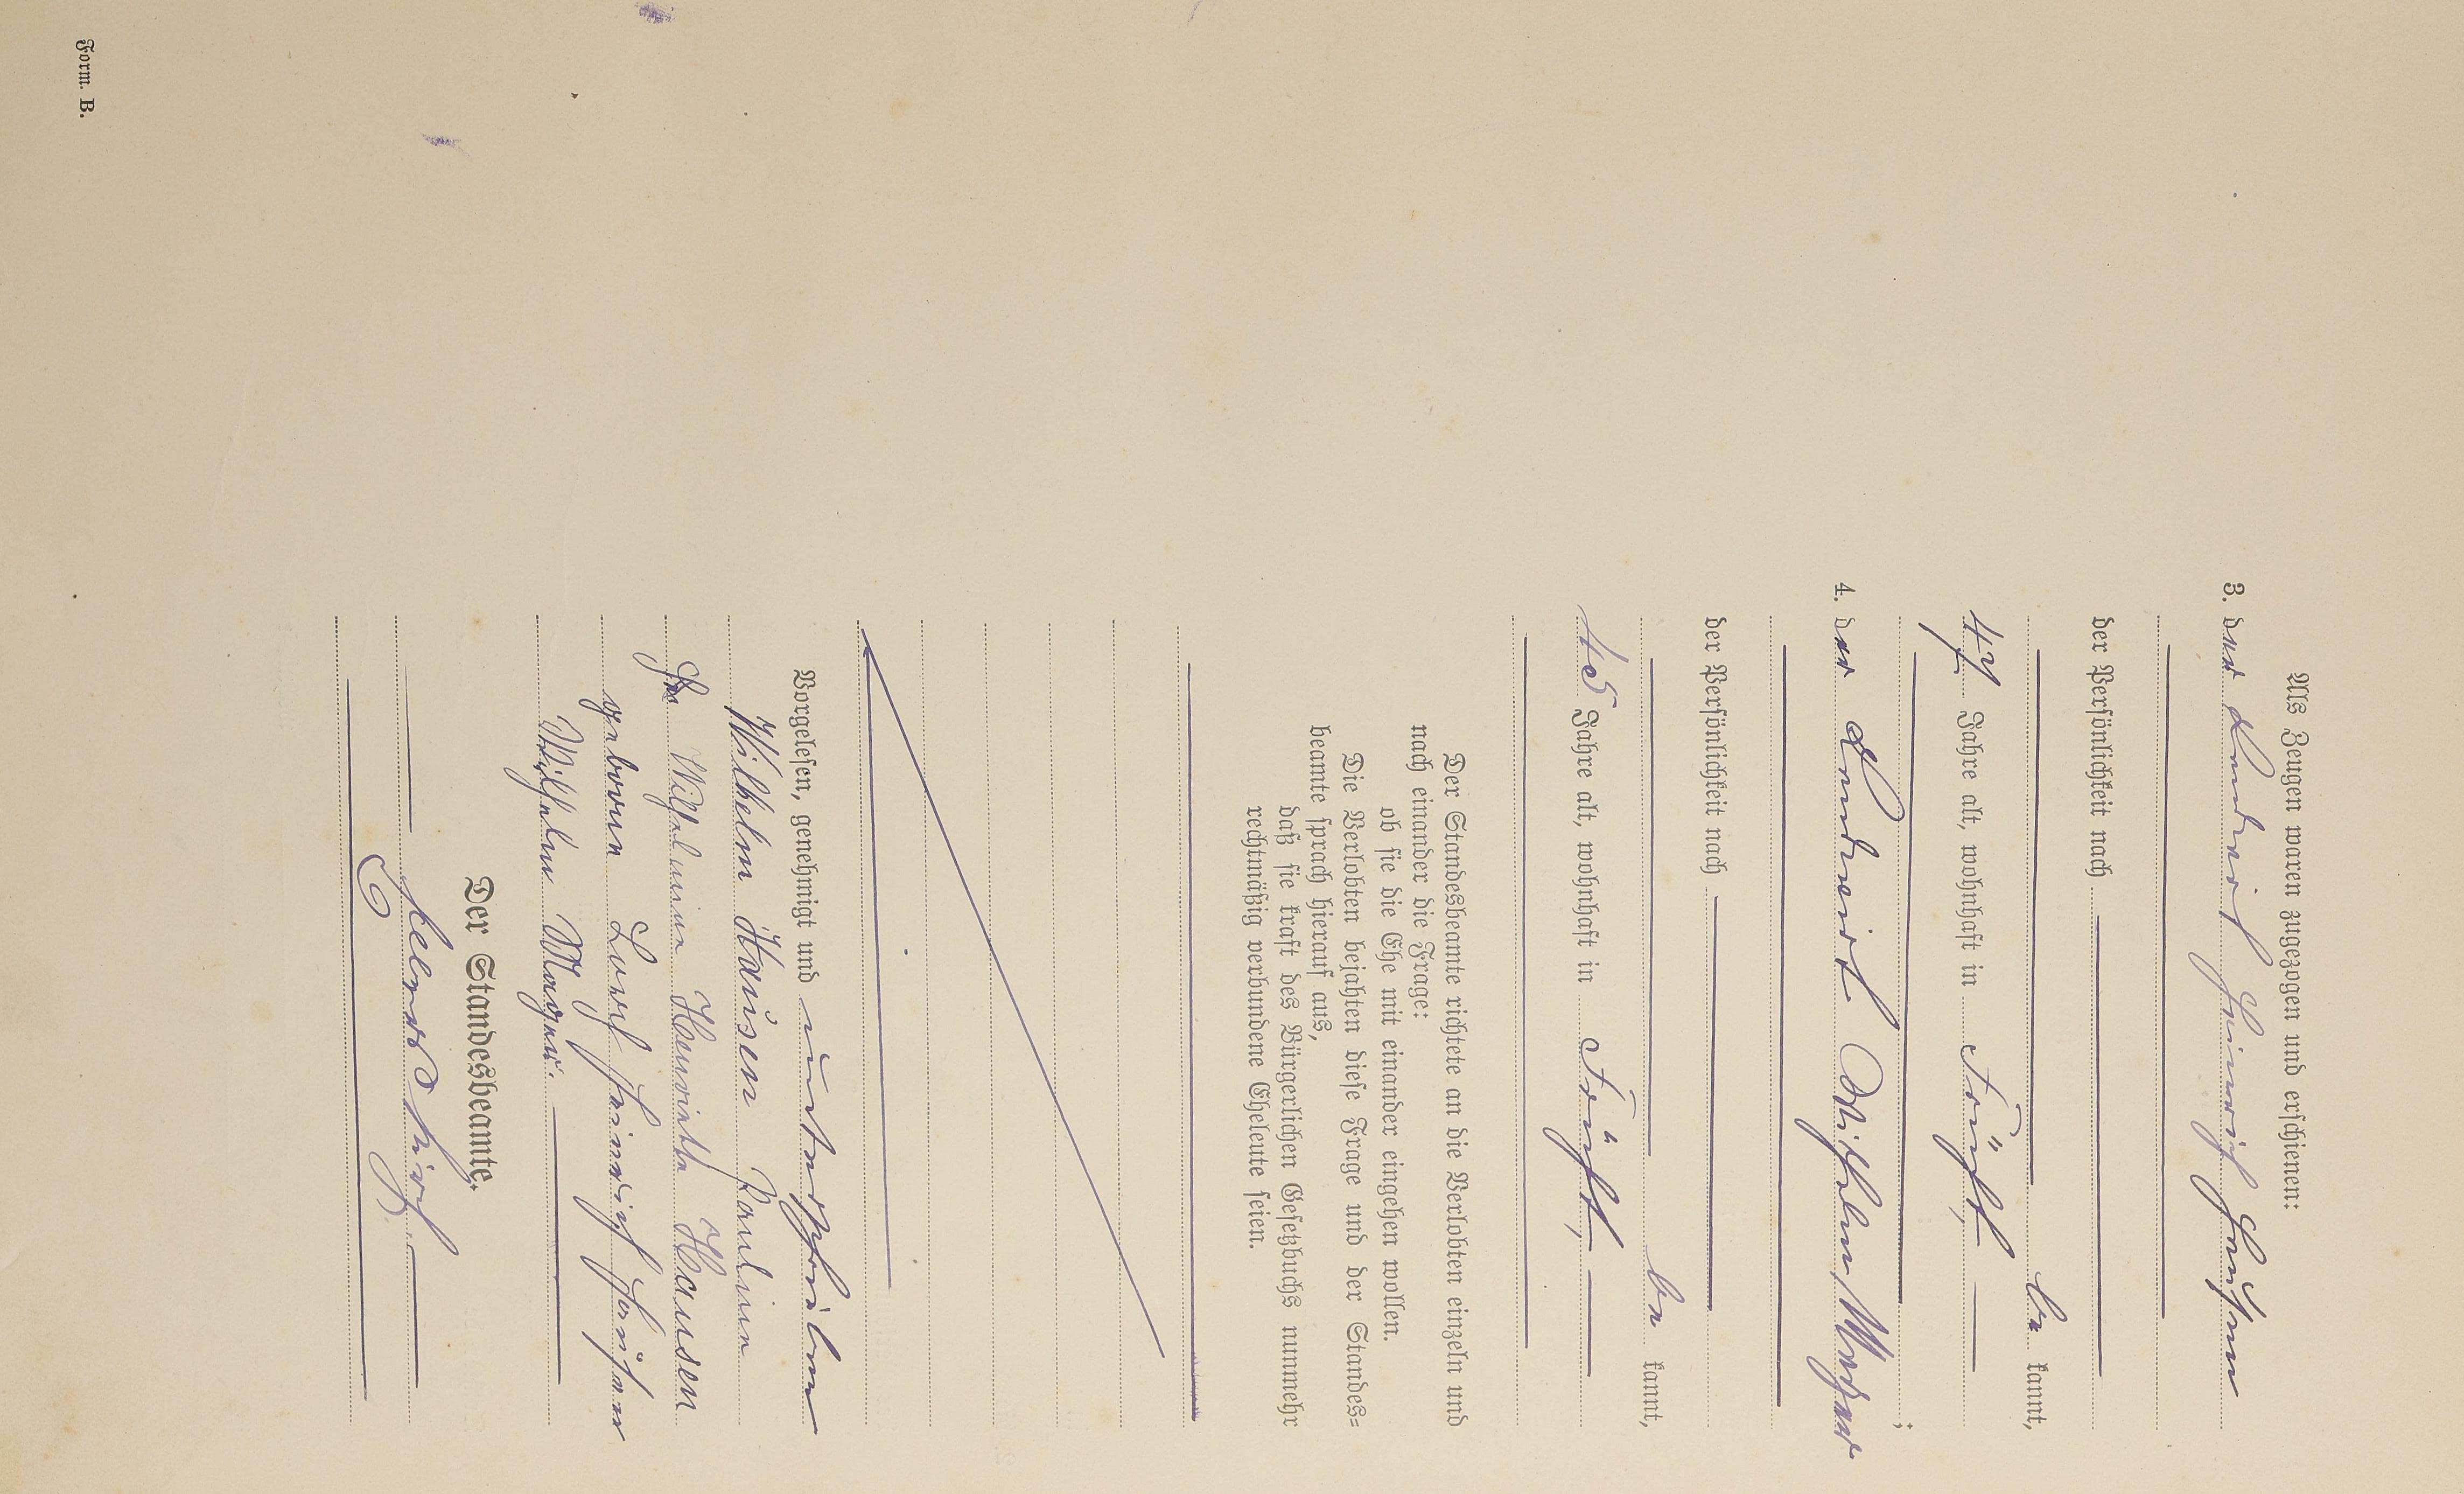 Als Zeugen waren zugezogen und erschienen:
3. der Landwirt Heinrich Hausen
der Persönlichkeit nach
be kannt,
47 Jahre alt, wohnhaft in Trüft,
;
4. der Landwirt Wilhelm Meyer
der Persönlichkeit nach
be kannt,
Jahre alt, wohnhaft in Trüft,
Der Standesbeamte richtete an die Verlobten einzeln und
nach einander die Frage:
ob sie die Ehe mit einander eingehen wollen.
Die Verlobten bejahten diese Frage und der Standes=
beamte sprach hierauf aus,
daß sie kraft des Bürgerlichen Gesetzbuchs nunmehr
rechtmäßig verbundene Eheleute seien.
Vorgelesen, genehmigt und unterschrieben
Wilhelm Hausen Pauline
Wilhelmine Henriette Hausen
geboren Heinrich Hausen
Wilhelm Meyer.
Der Standesbeamte.
Form. B.